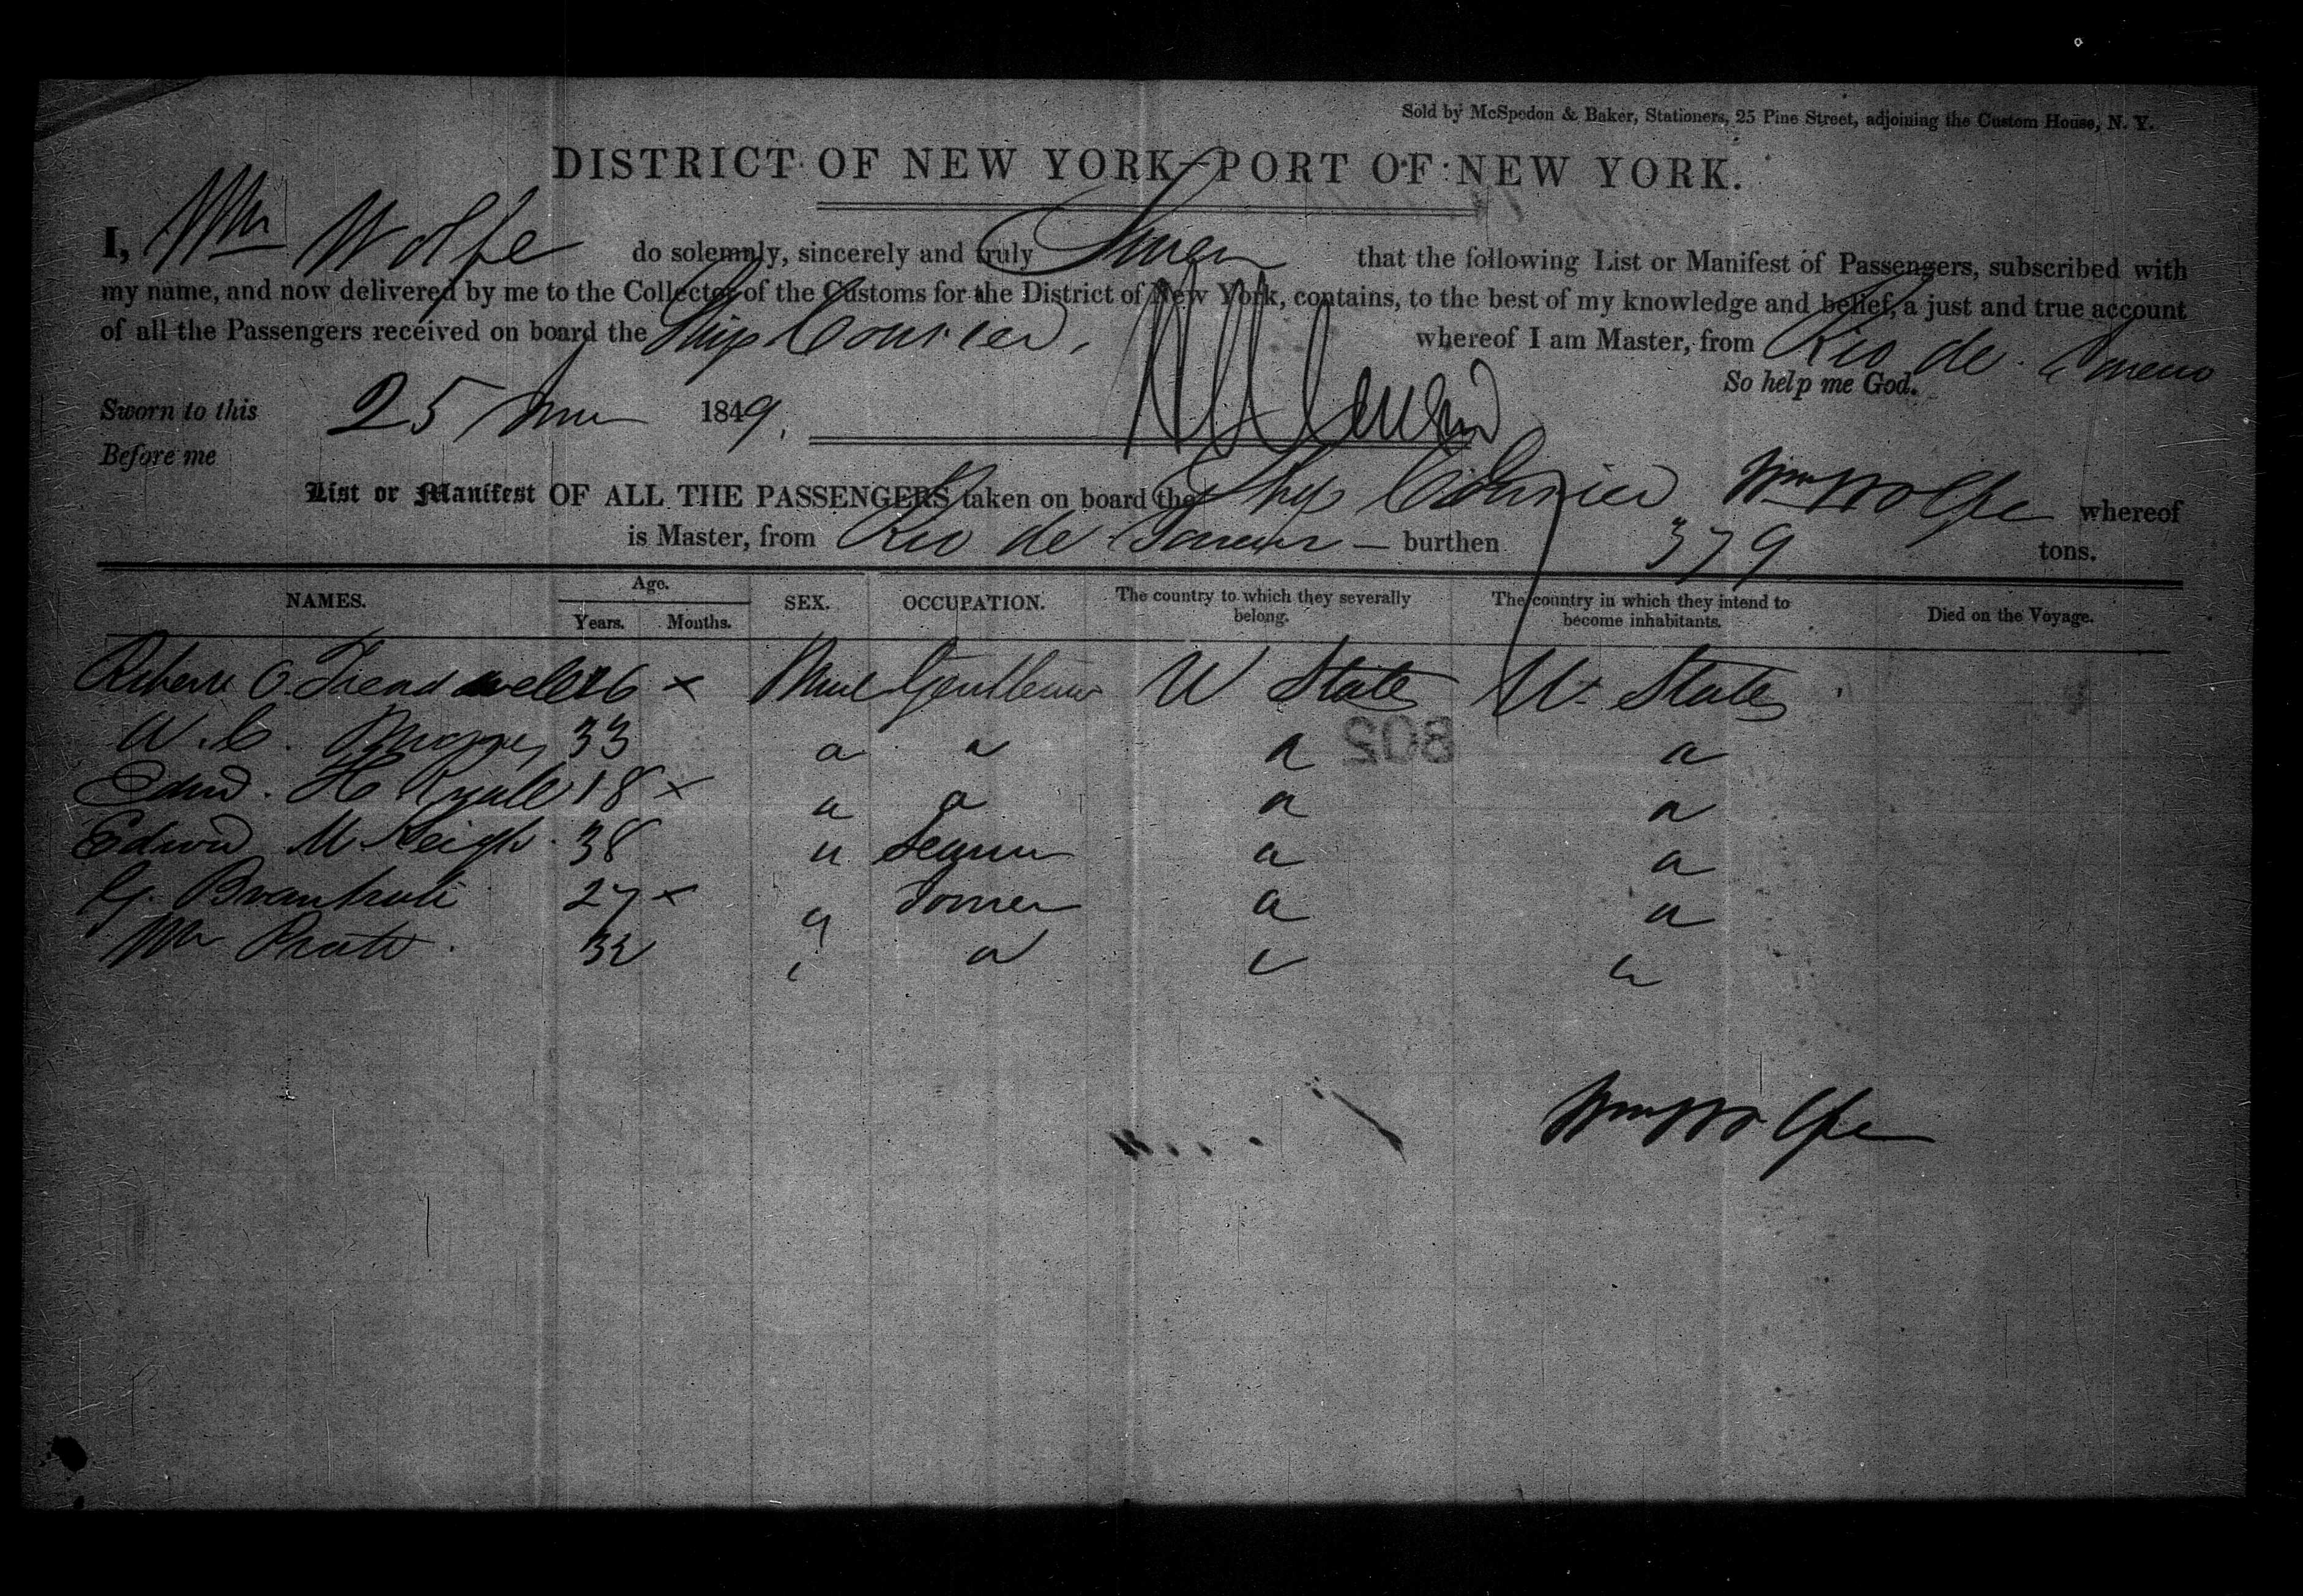 Sold by McSpedon & Baker, Stationers, 25 Pine Street, adjoining the Custom House, N. Y.
DISTRICT OF NEW YORK—PORT OF NEW YORK.
I, Wm Wolfe do solemnly, sincerely and truly Swear that the following List or Manifest of Passengers, subscribed with
my name, and now delivered by me to the Collector of the Customs for the District of New York, contains, to the best of my knowledge and belief, a just and true account
of all the Passengers received on board the Ship Courier, whereof I am Master, from Rio de Janeiro
So help me God.
Sworn to this 25 1849.
Before me
List or Manifest OF ALL THE PASSENGERS taken on board the Ship Courier Wm Wolfe whereof
is Master, from Rio de Janeiro — burthen 379 tons.
NAMES. Age. Years. Months. SEX. OCCUPATION. The country to which they severally belong. The country in which they intend to become inhabitants. Died on the Voyage.
O. Treadwell 26 x Male Gentleman U States U. States
W. C. 33 " " " "
Edwd. H Ryall 18 x " " " "
Edwd M Keigh 38 " Seaman " "
G. 27 x " " "
Wm Pratt 32 " " " "
802
Wm Wolfe